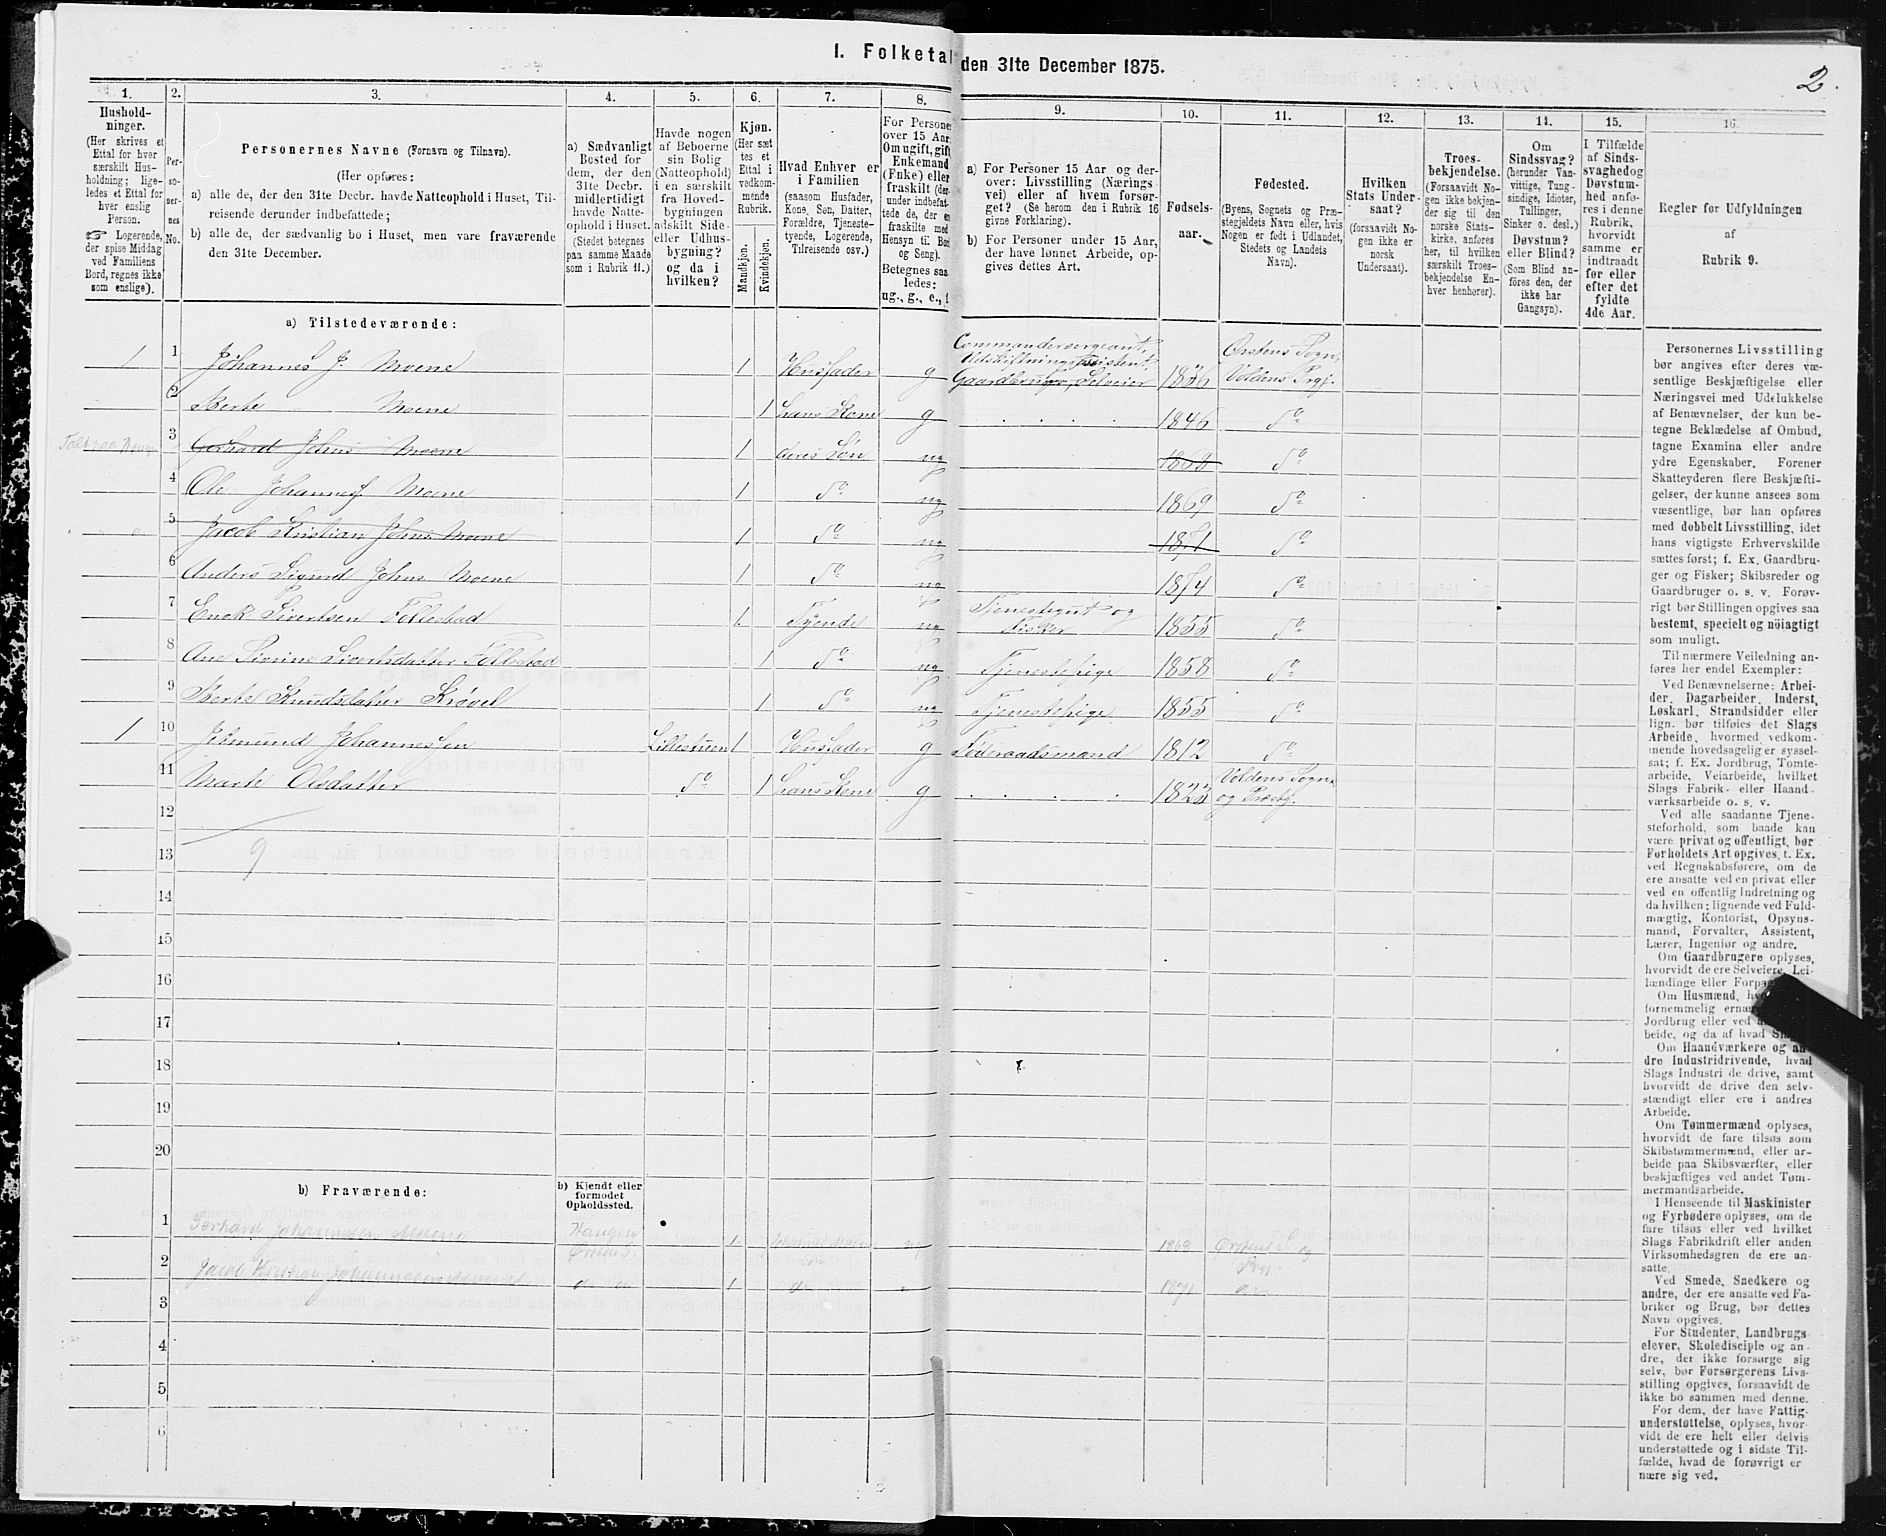 I. Folketal den 31te December 1875.
2.
1.
Hushold-
ninger.
(Her skrives et
Ettal for hver
særskilt Hus-
holdning; lige-
ledes et Ettal for
hver enslig
Person.
☞ Logerende,
der spise Middag
ved Familiens
Bord, regnes ikke
som enslige).
2.
Per-
so-
ner-
nes
No.
3.
Personernes Navne (Fornavn og Tilnavn).
(Her opføres:
a) alle de, der den 31te Decbr. havde Natteophold i Huset, Til-
reisende derunder indbefattede;
b) alle de, der sædvanlig bo i Huset, men vare fraværende
den 31te December.
4.
a) Sædvanligt
Bosted for
dem, der den
31te Decbr.
midlertidigt
havde Natte-
ophold i Huset.
(Stedet betegnes
paa samme Maade
som i Rubrik 11.)
5.
Havde nogen
af Beboerne
sin Bolig
(Natteophold)
i en særskilt
fra Hoved-
bygningen
adskilt Side-
eller Udhus-
bygning?
og da i
hvilken?
6.
Kjøn.
(Her sæt-
tes et
Ettal i
vedkom-
mende
Rubrik.
Mandkjøn.
Kvindekjøn.
7.
Hvad Enhver er
i Familien
(saasom Husfader,
Kone, Søn, Datter,
Forældre, Tjeneste-
tyende, Logerende,
Tilreisende osv.)
8.
For Personer
over 15 Aar
Om ugift, gift
Enkemand
(Enke) eller
fraskilt (der-
under indbefat-
tede de, der er
fraskilte med
Hensyn til Bord
og Seng).
Betegnes saa-
ledes:
ug., g., e., f.
9.
a) For Personer 15 Aar og der-
over: Livsstilling (Nærings-
vei) eller af hvem forsør-
get? (Se herom den i Rubrik 16
givne Forklaring).
b) For Personer under 15 Aar,
der have lønnet Arbeide, op-
gives dettes Art.
10.
Fødsels-
aar.
11.
Fødested.
(Byens, Sognets og Præ-
stegjeldets Navn eller, hvis
Nogen er født i Udlandet,
Stedets og Landets
Navn).
12.
Hvilken
Stats Under-
saat?
(forsaavidt No-
gen ikke er
norsk
Undersaat).
13.
Troes-
bekjendelse.
(Forsaavidt No-
gen ikke bekjen-
der sig til den
norske Stats-
kirke, anføres
her, til hvilken
særskilt Troes-
bekjendelse En-
hver henhører).
14.
Om
Sindssvag?
(herunder Van-
vittige, Tung-
sindige, Idioter,
Tullinger,
Sinker o. desl.)
Døvstum?
eller Blind?
(Som Blind an-
føres den, der
ikke har
Gangsyn).
15.
I Tilfælde
af Sinds-
svaghed og
Døvstum-
hed anfø-
res i denne
Rubrik,
hvorvidt
samme er
indtraadt
før eller
efter det
fyldte
4de Aar.
16.
Regler før Udfyldningen
af
Rubrik 9.
a) Tilstedeværende:
1 1 Johannes J. Moene 1 Husfader g Commandersergeant, Udskiftningsassistent, Gaardbruger, Selveier 1836 Ørstens Sogn, Voldens Prgj.
2 Berte Moene 1 hans Kone g 1846 do
3 Gerhard Johns Moene 1 deres Søn ug 1868 do
4 Ole Johanness Moene 1 do ug 1869 do
5 Jacob Kristian Johns Moene 1 do ug 1871 do
6 Anders Sigurd Johns Moene 1 do ug 1874 do
7 Enok Sivertsen Follestad 1 Tyende ug Tjenestegut og Fisker 1855 do
8 Ane Sivertsdatter Follestad 1 do ug Tjenestepige 1858 do
9 Berte Knudsdatter Krøvel 1 do ug Tjenestepige 1855 do
1 10 Jetmund Johannessen Lillestuen 1 Husfader g Føderaadsmand 1812 do
11 Marte Olsdatter do 1 hans Kone g 1823 Voldens Sogn og Præstg.
12
13 9
14
15
16
17
18
19
20
b) Fraværende:
b) Kjendt eller
formodet
Opholdssted.
1 Gerhard Johannessen Moene 1 Søn 1868 Ørstens S. og Prgj.
2 Jacob Kristian 1 do 1871 do
3
4
5
6
Personernes Livsstilling
bør angives efter deres væ-
sentlige Beskjæftigelse eller
Næringsvei med Udelukkelse
af Benævnelser, der kun be-
tegne Beklædelse af Ombud,
tagne Examina eller andre
ydre Egenskaber. Forener
Skatteyderen flere Beskjæfti-
gelser, der kunne ansees som
væsentlige, bør han opføres
med dobbelt Livsstilling, idet
hans vigtigste Erhvervskilde
sættes først; f. Ex. Gaardbru-
ger og Fisker; Skibsreder og
Gaardbruger o. s. v. Forøv-
rigt bør Stillingen opgives saa
bestemt, specielt og nöiagtigt
som muligt.
Til nærmere Veiledning an-
føres her endel Exempler:
Ved Benævnelserne: Arbei-
der, Dagarbeider, Inderst,
Løskarl, Strandsidder eller
lign. bør tilføies det Slags
Arbeide, hvormed vedkom-
mende hovedsagelig er syssel-
sat; f. Ex. Jordbrug, Tomte-
arbeide, Veiarbeide, hvilket
Slags Fabrik- eller Haand-
værksarbeide o. s. v.
Ved alle saadanne Tjene-
steforhold, som baade kan
være privat og offentligt, bør
Forholdets Art opgives, t. Ex.
ved Regnskabsførere, om de
ere ansatte ved en privat eller
ved en offentlig Indretning og
da hvilken; lignende ved Fuld-
mægtig, Kontorist, Opsyns-
mand, Forvalter, Assistent,
Lærer, Ingeniør og andre.
Om Gaardbrugere oplyses,
hvorvidt de ere Selveiere, Lei-
lændinge eller
Om Husmænd,
fornemmelig
Jordbrug eller ved
beide, og da af hvad
Om Haandværkere og an-
dre Industridrivende, hvad
Slags Industri de drive, samt
hvorvidt de drive den selv-
stændigt eller ere i andres
Arbeide.
Om Tømmermænd oplyses,
hvorvidt de fare tilsøs som
Skibstømmermænd, eller ar-
beide paa Skibsværfter, eller
beskjæftiges ved andet Tøm-
mermandsarbeide.
I Henseende til Maskinister
og Fyrbødere oplyses, om de
fare tilsøs eller ved hvilket
Slags Fabrikdrift eller anden
Virksomhedsgren de ere an-
satte.
Ved Smede, Snedkere og
andre, der ere ansatte ved Fa-
briker og Brug, bør dettes
Navn opgives.
For Studenter, Landbrugs-
elever, Skoledisciple og an-
dre, der ikke forsørge sig
selv, bør Forsørgerens Livs-
stilling opgives, forsaavidt de
ikke bo sammen med denne.
For dem, der have Fattig-
understøttelse, oplyses, hvor-
vidt de ere helt eller delvis
understøttede og i sidste Til-
fælde, hvad de forøvrigt er
nære sig ved.